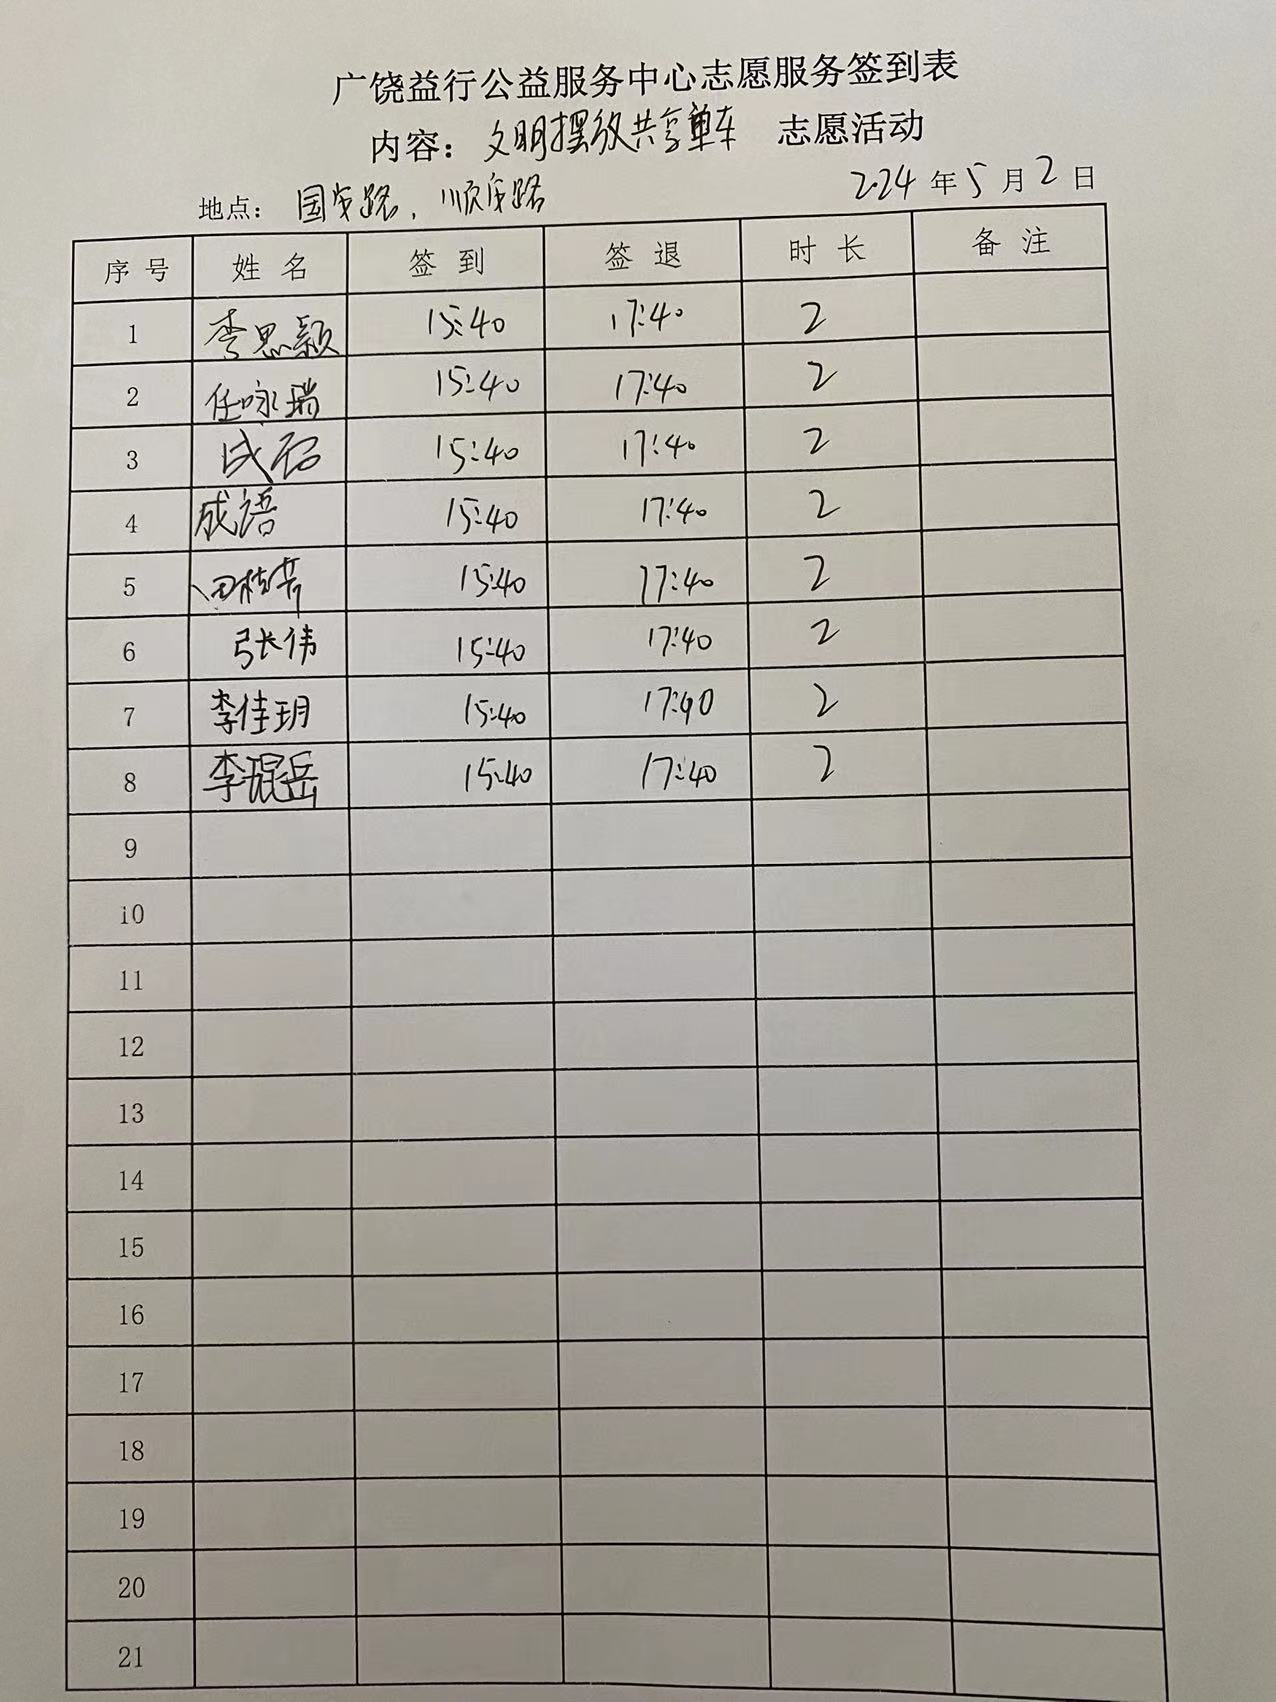 广饶益行公益服务中心志愿服务签到表
内容：文明摆放共享单车 志愿活动
地点：国安路、顺安路 2024年5月2日
序号 姓名 签到 签退 时长 备注
1 李思颖 15:40 17:40 2
2 任咏瑞 15:40 17:40 2
3 成 15:40 17:40 2
4 成语 15:40 17:40 2
5 田桂芳 15:40 17:40 2
6 张伟 15:40 17:40 2
7 李佳玥 15:40 17:40 2
8 李琨岳 15:40 17:40 2
9
10
11
12
13
14
15
16
17
18
19
20
21